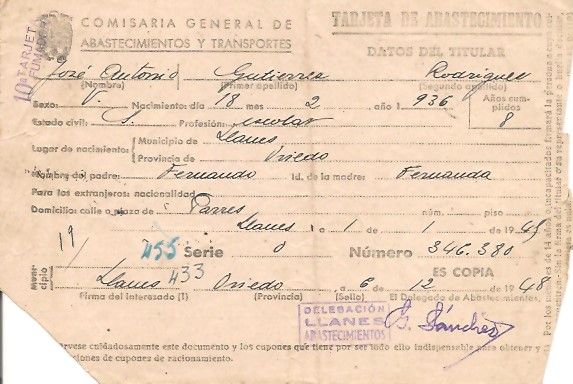 COMISARIA GENERAL DE
ABASTECIMIENTOS Y TRANSPORTES
TARJETA DE ABASTECIMIENTO
DATOS DEL TITULAR
TARJET
FUMAD
José Antonio Gutierrez Rodriguez
(Nombre) (Primer apellido) (Segundo apellido)
Sexo: V. Nacimiento: día 18 mes 2 año 1.936
Años cumplidos 8
Estado civil: S. Profesión: escolar
Lugar de nacimiento: Municipio de Llanes
Provincia de Oviedo
Nombre del padre: Fernando Id. de la madre: Fernanda
Para los extranjeros: nacionalidad
Domicilio: calle o plaza de Parres núm. piso
Llanes a 1 de 1 de 1945
19
455 Serie O Número 346.380
433
ES COPIA
Municipio
Llanes Oviedo a 6 12 1948
Firma del interesado (1) (Provincia) (Sello) El Delegado de Abastecimientos,
DELEGACIÓN
LLANES
ABASTECIMIENTOS
G. Sánchez
rvese cuidadosamente este documento y los cupones que tiene por ser todo ello indispensable para obtener y
ciones de cupones de racionamiento.